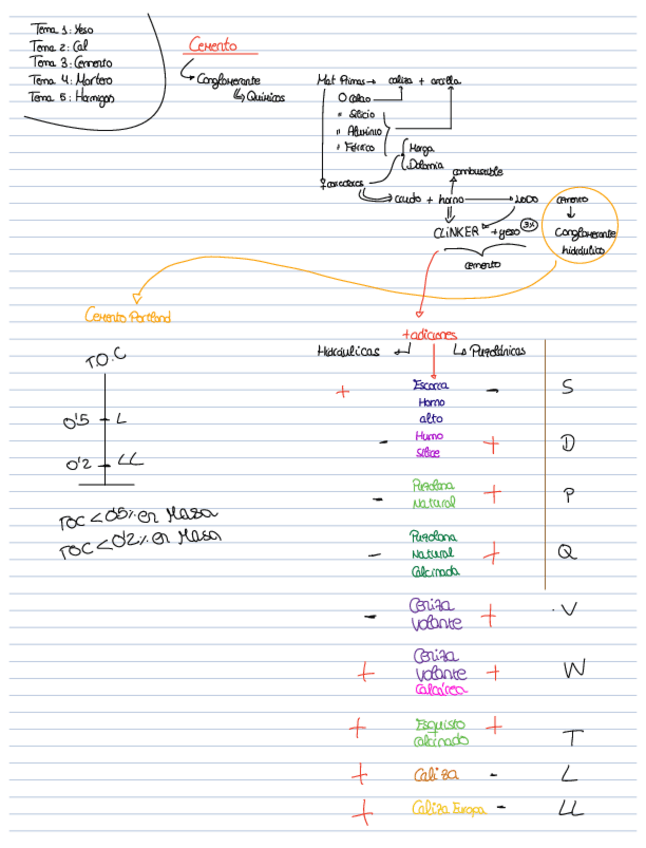 Tema 1: Yeso
Tema 2: Cal
Tema 3: Cemento
Tema 4: Mortero
Tema 5: Hormigón
Cemento
Conglomerante
Químicos
Mat Primas → caliza + arcilla
O Calcio
" Silicio
" Aluminio
" Férrico
Marga
Dolomia
combustible
+ correctores
crudo + horno → 2000
CLíNKER + yeso 3%
cemento
cemento
Conglomerante
hidráulico
Cemento Portland
+ adiciones
Hidráulicas
Puzolánicas
T.O.C
0'5 L
0'2 LL
TOC < 0'5% en Masa
TOC < 0'2% en Masa
+ Escoria Horno alto - S
- Humo Sílice + D
- Puzolana Natural + P
- Puzolana Natural Calcinada + Q
- Ceniza Volante + V
+ Ceniza Volante Calcárea + W
+ Esquisto calcinado + T
+ Caliza - L
+ Caliza Europa - LL